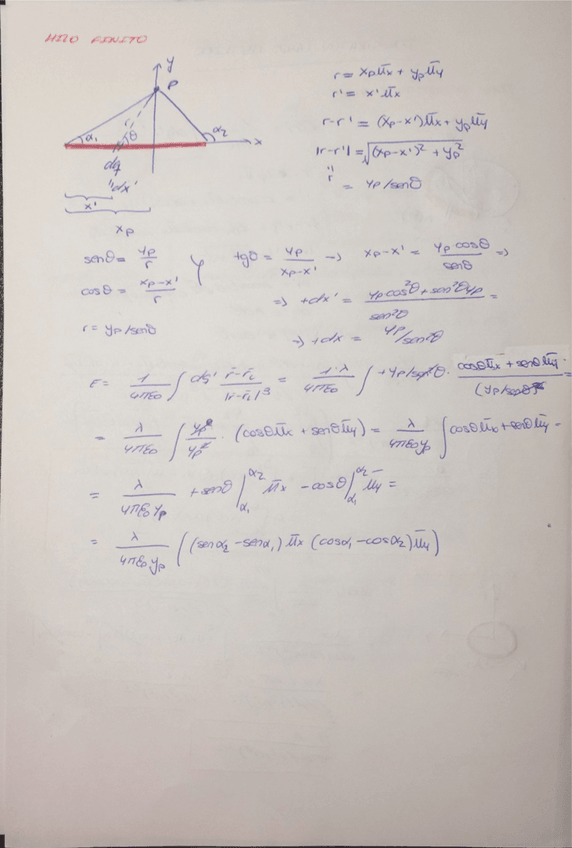 HILO FINITO
y
P
α₁ r θ α₂ x
dq
"dx'
x'
xp
r = xp ūx + yp ūy
r' = x' ūx
r-r' = (xp-x') ūx + yp ūy
|r-r'| = √((xp-x')² + yp²)
"
r = yp/senθ
senθ = yp/r y tgθ = yp/(xp-x') → xp-x' = yp cosθ/senθ ⇒
cosθ = (xp-x')/r ⇒ +dx' = (yp cos²θ + sen²θ yp)/sen²θ =
r = yp/senθ → +dx = yp/sen²θ
E = 1/(4πε₀) ∫ dq' (r̄-r̄')/|r̄-r̄'|³ = 1·λ/(4πε₀) ∫ +yp/sen²θ · (cosθ ūx + senθ ūy)/(yp/senθ)² =
= λ/(4πε₀) ∫ yp/yp² · (cosθ ūx + senθ ūy) = λ/(4πε₀yp) ∫ cosθ ūx + senθ ūy =
= λ/(4πε₀yp) +senθ |α₁^α₂ ūx - cosθ |α₁^α₂ ūy =
= λ/(4πε₀yp) ((senα₂ - senα₁) ūx (cosα₁ - cosα₂) ūy)